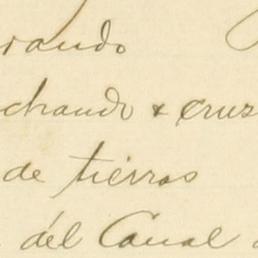 rando
chando & cruz
de tierras
del Canal